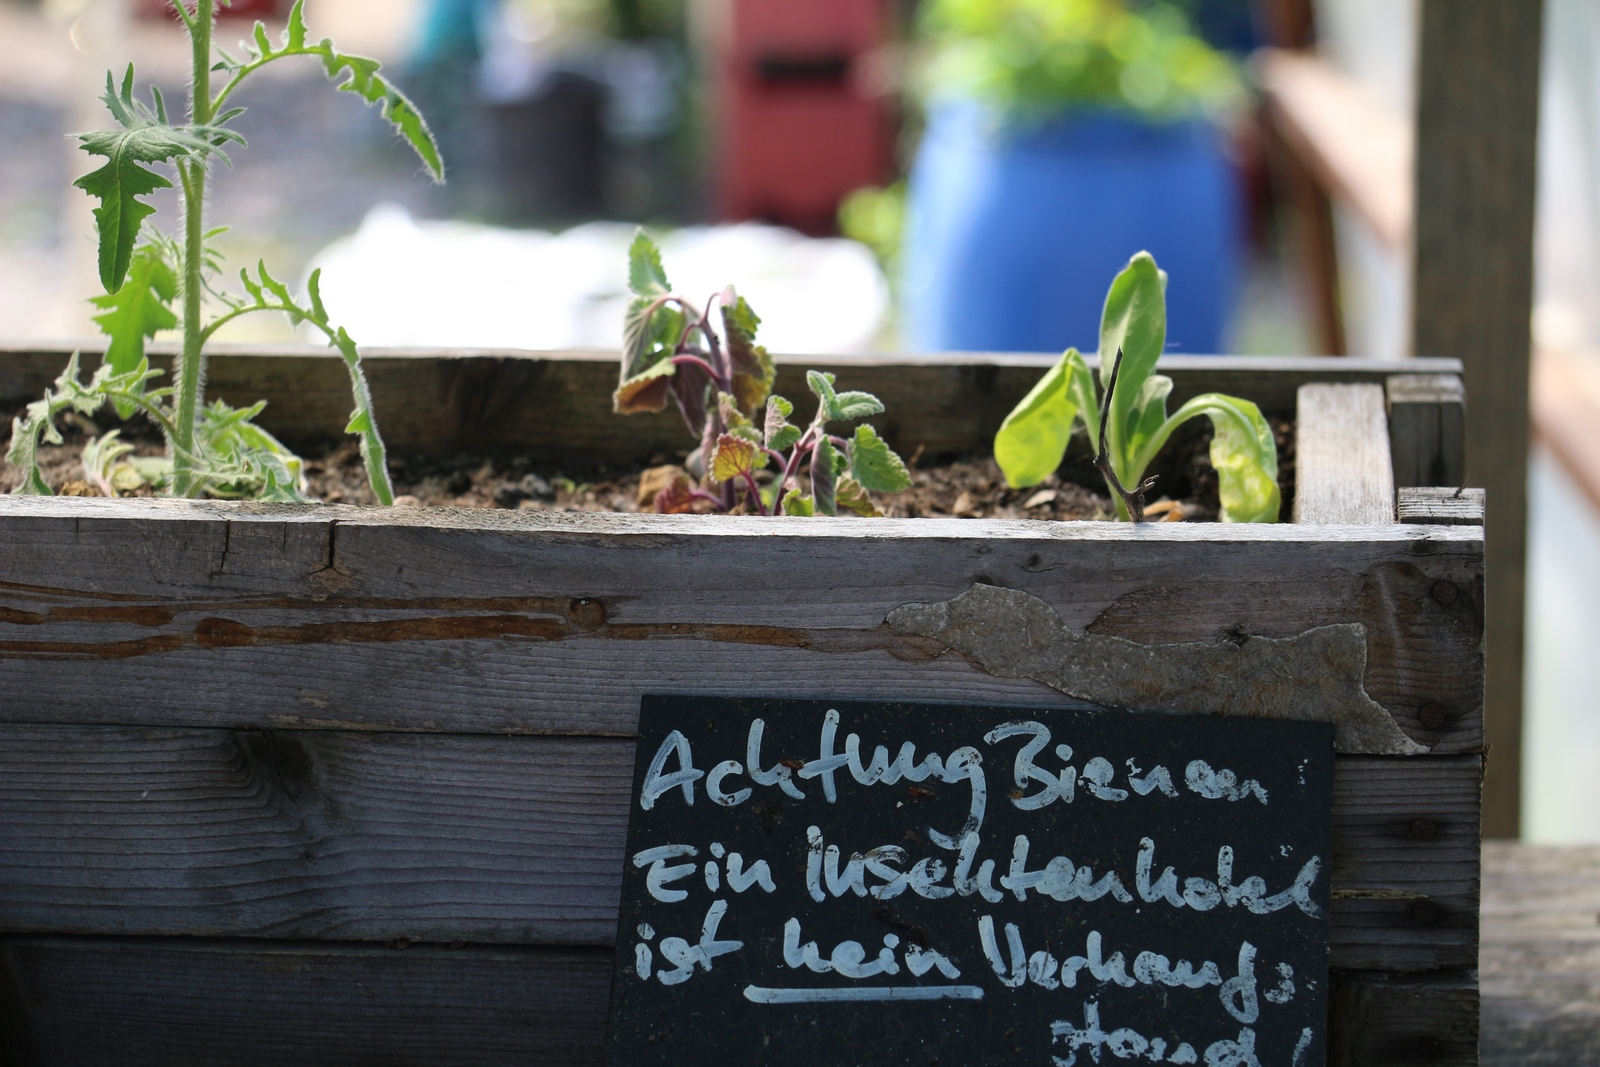 Achtung Bienen
Ein Insektenhotel
ist kein Verkaufs
stand!